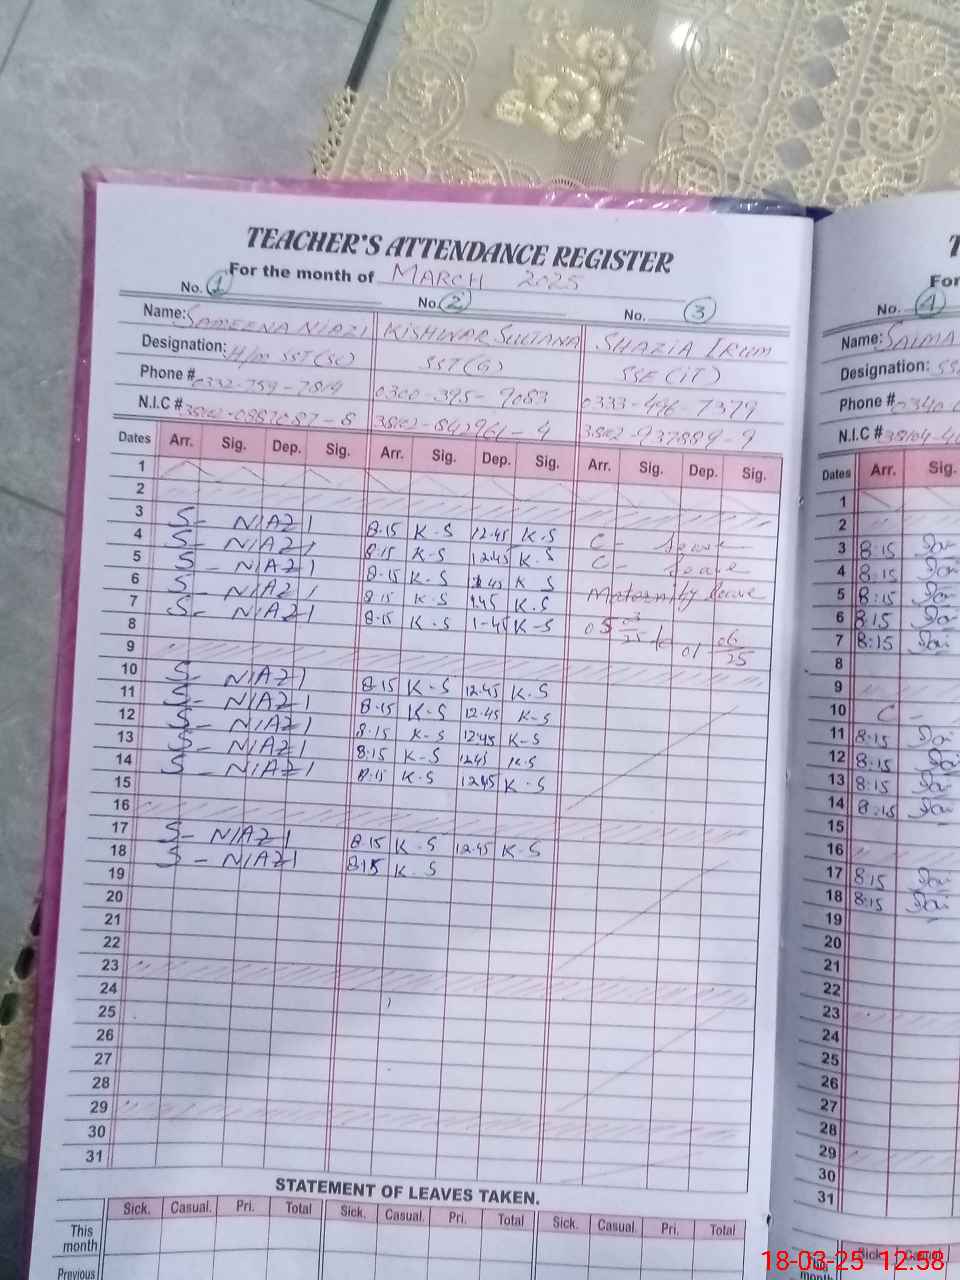 TEACHER'S ATTENDANCE REGISTER
For the month of MARCH 2025
No. 1 No. 2 No. 3
Name: SAMEENA NIAZI KISHWAR SULTANA SHAZIA IRUM
Designation: H/m SST(SC) SST(G) SSE(IT)
Phone # 0332-759-7814 0300-395-9083 0333-496-7379
N.I.C # 38102-0887087-8 38102-842961-4 38102-937889-9
Dates Arr. Sig. Dep. Sig. Arr. Sig. Dep. Sig. Arr. Sig. Dep. Sig.
1
2
3 S- NIAZI 8.15 K-S 12.45 K-S C- Leave
4 S- NIAZI 8.15 K-S 12.45 K-S C- Leave
5 S- NIAZI 8.15 K-S 1.45 K S Maternity Leave
6 S- NIAZI 8.15 K-S 1.45 K-S 05 03/25 to 01 06/25
7 S- NIAZI 8.15 K-S 1-45 K-S
8
9
10 S- NIAZI 8.15 K-S 12.45 K-S
11 S- NIAZI 8.15 K-S 12.45 K-S
12 S- NIAZI 8.15 K-S 12.45 K-S
13 S- NIAZI 8.15 K-S 12.45 K-S
14 S- NIAZI 8.15 K-S 12.45 K-S
15
16
17 S- NIAZI 8.15 K-S 12.45 K-S
18 S- NIAZI 8.15 K-S
19
20
21
22
23
24
25
26
27
28
29
30
31
STATEMENT OF LEAVES TAKEN.
Sick. Casual. Pri. Total Sick. Casual. Pri. Total Sick. Casual. Pri. Total
This
month
Previous
T
For
No. 4
Name: SALMA
Designation: SS
Phone # 0340
N.I.C # 38104-40
Dates Arr. Sig.
1
2
3 8:15
4 8:15
5 8:15
6 8:15
7 8:15
8
9
10 C-
11 8:15
12 8:15
13 8:15
14 8:15
15
16
17 8:15
18 8:15
19
20
21
22
23
24
25
26
27
28
29
30
31
Sick. Casual
This
month
18-03-25 12:58